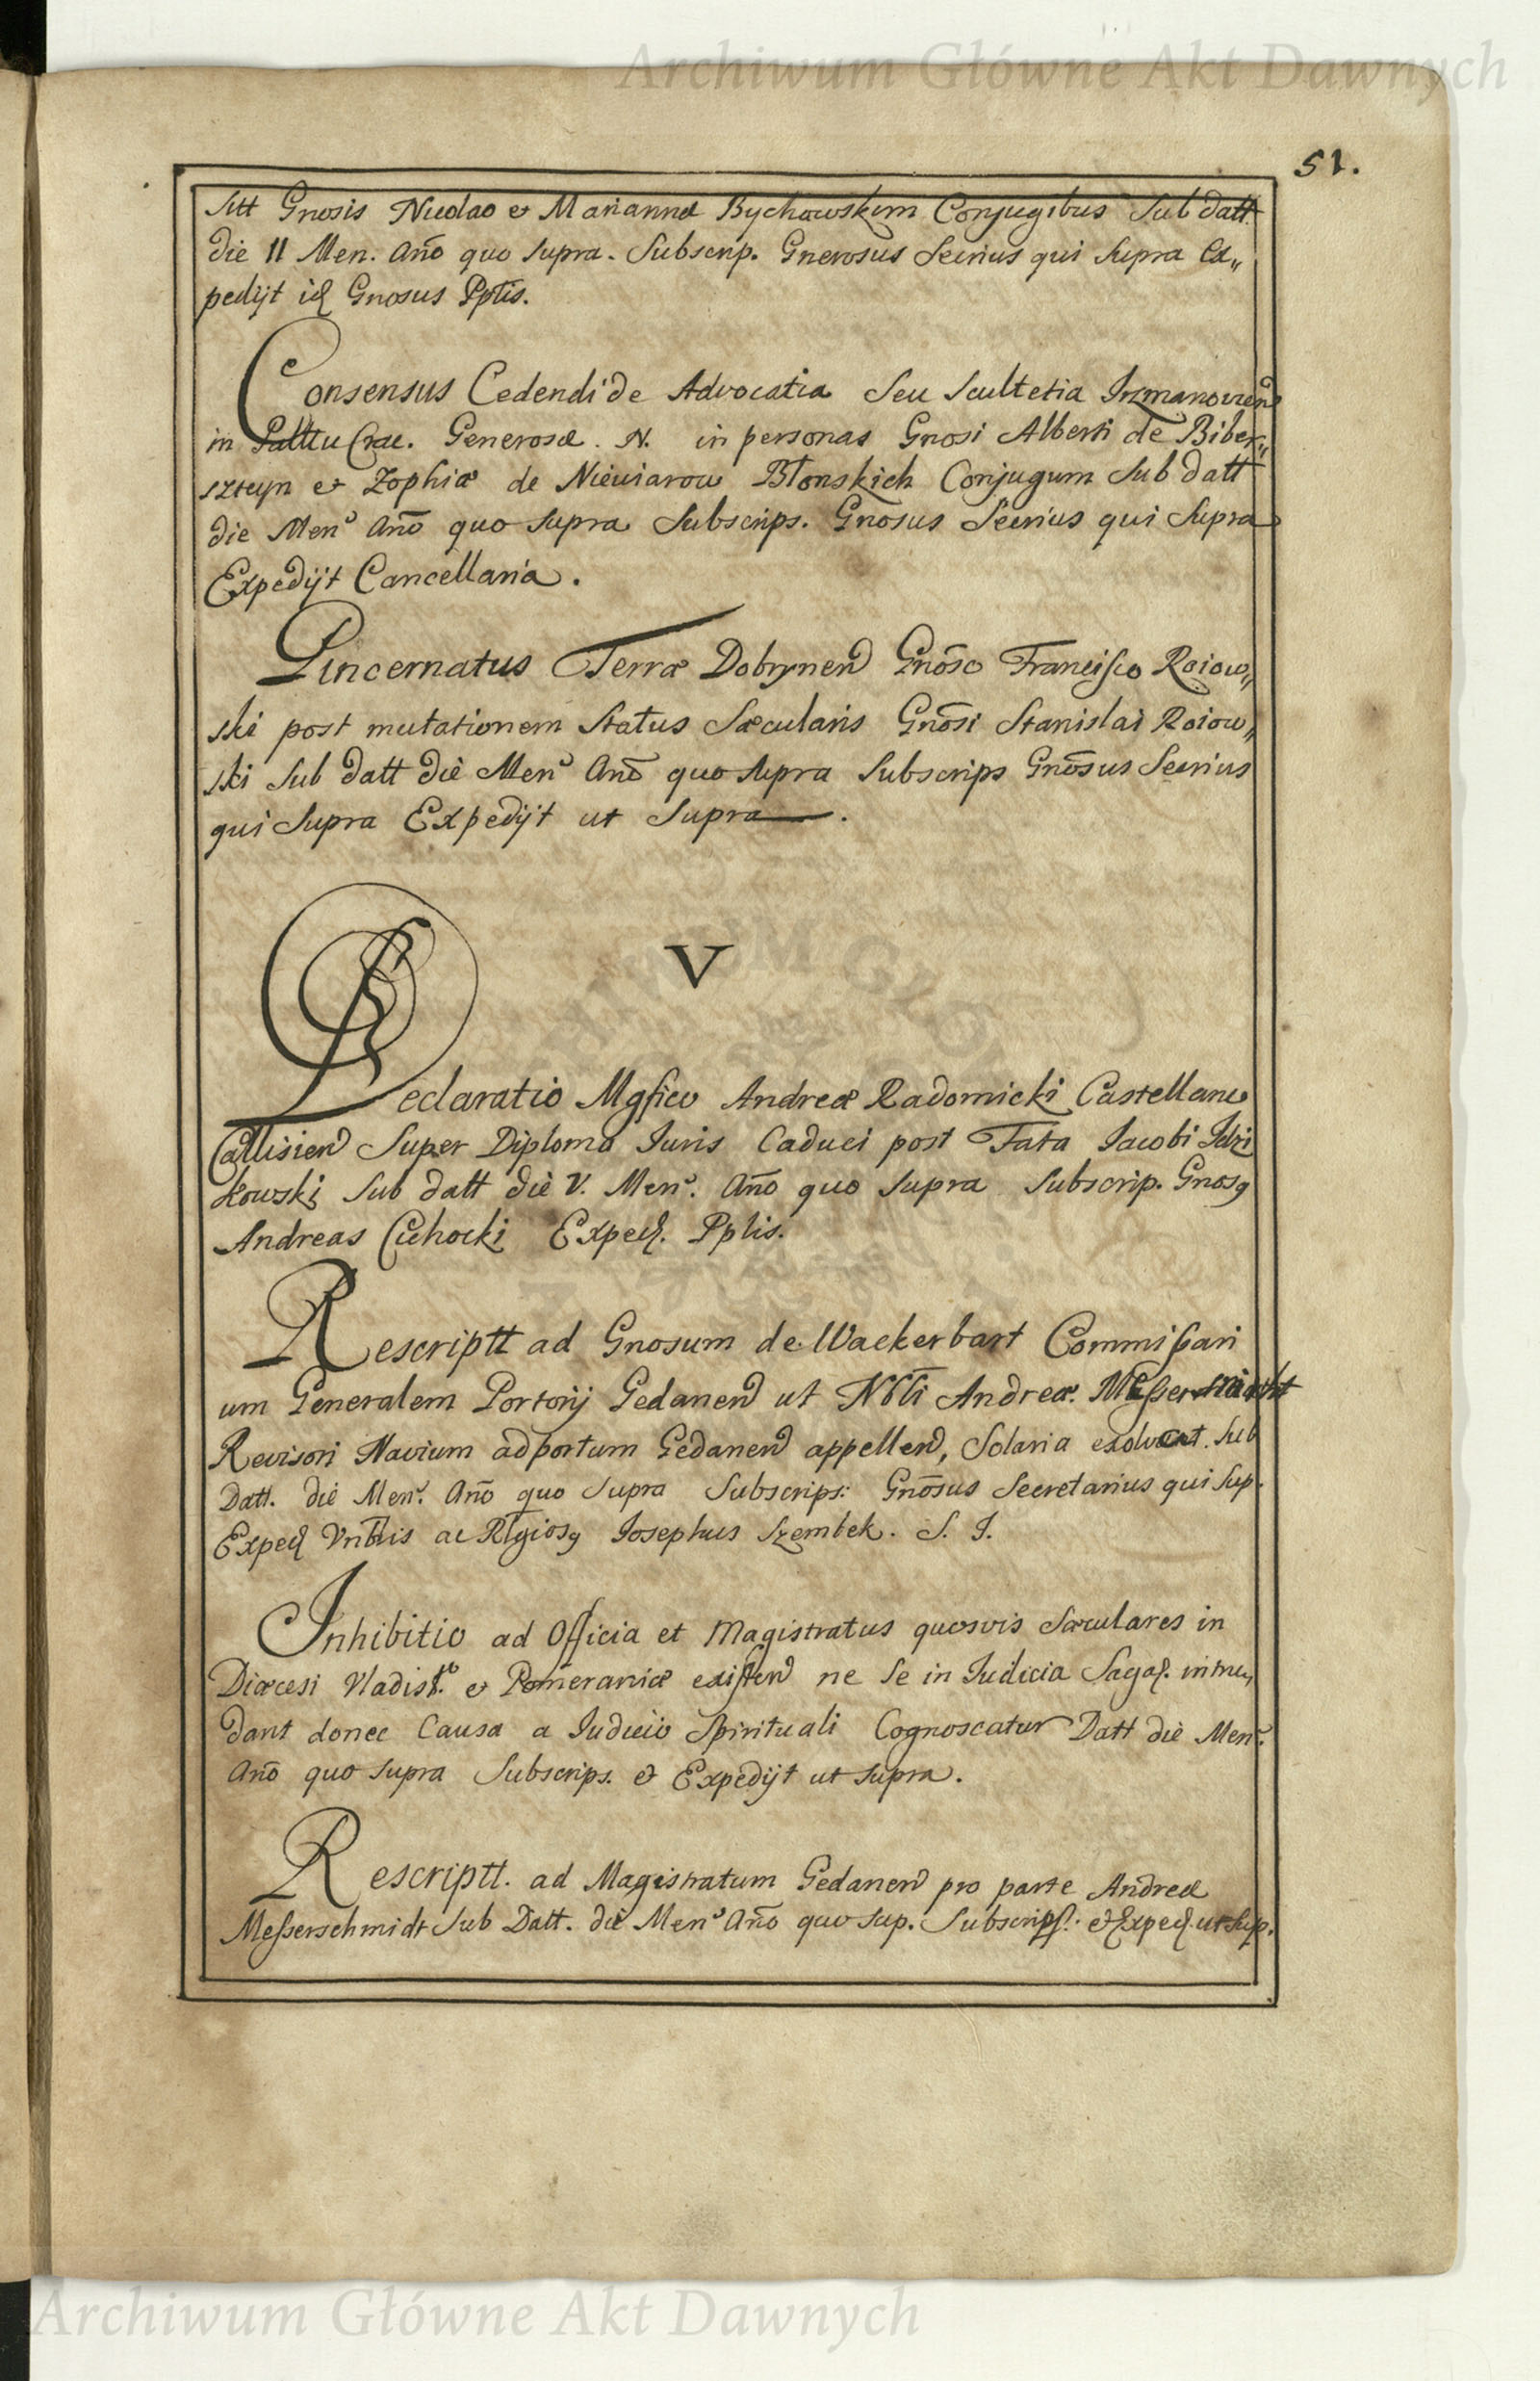 Archiwum Główne Akt Dawnych
51.
Sitt Gnosis Nicolao et Mariannæ Bychowskim Conjugibus Sub datt.
die 11 Men. Año quo supra. Subscrip. Gnerosus Secrius qui supra Ex„
pedijt id Gnosus Pptis.
Consensus Cedendi de Advocatia Seu Scultetia Irzmanovien
in Palttu Crac. Generosæ. N. in personas Gnosi Alberti de Biber„
szteyn et Zophiæ de Nieuiarow Błonskich Conjugum Sub datt
die Men' Año quo supra Subscrips. Gnosus Secrius qui supra
Expedijt Cancellaria.
Pincernatus Terræ Dobrynen Gnõso Francisco Roiow„
ski post mutationem Status Sæcularis Gnõsi Stanislai Roiow„
ski Sub datt die Men' Año quo supra Subscrips Gnõsus Secrius
qui Supra Expedijt ut Supra.
V
Declaratio Mgfico Andreæ Radomicki Castellano
Callisien Super Diploma Iuris Caduci post Fata Iacobi Idzi
kowski Sub datt die V. Men'. Año quo supra Subscrip. Gnosq
Andreas Cichocki Exped. Pplis.
Rescriptt ad Gnosum de Wackerbart Commissari
um Generalem Portorij Gedanen ut Nbli Andreæ. Messerschmidt
Revisori Navium ad portum Gedanen appellen, Solaria exolvant. Sub
Datt. die Men'. Año quo Supra Subscrips: Gnõsus Secretarius qui Sup.
Exped Vnblis ac Rlgiosq Josephus Szembek. S. J.
Inhibitio ad Officia et Magistratus quosvis Sæculares in
Diœcesi Vladisl. et Pomeraniæ existen ne se in Iudicia Sagaȝ. intru„
dant donec Causa a Iudicio Spirituali Cognoscatur Datt die Men'.
Año quo supra Subscrips. et Expedijt ut supra.
Rescriptt. ad Magistratum Gedanen pro parte Andreæ
Messerschmidt Sub Datt. die Men' Año quo sup. Subscrips. et Exped. ut Sup.
Archiwum Główne Akt Dawnych